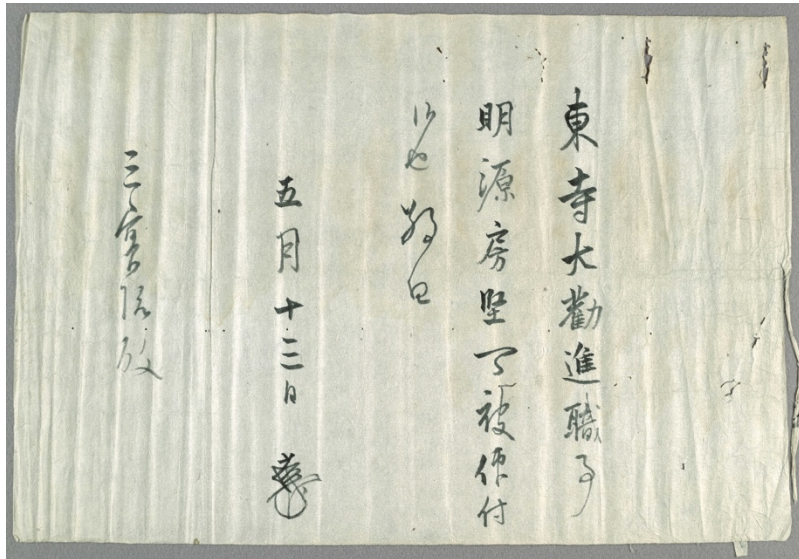 東寺大勧進職事
明源房堅可被仰付
候也敬白
五月十三日
三宝院殿